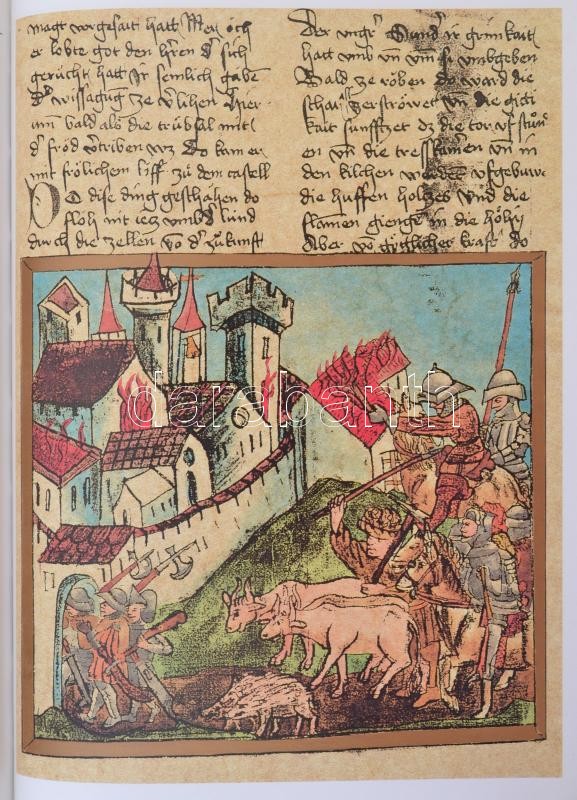 magt vor geseit hatt Mer och
er lobte got den herren der sich
gerücht hatt ir semlich gabe
der wissagung ze verlihen
umb bald als die trübsal mit
der fröd vertriben wz Do kam er
mit frölichen liff zu dem castell
Do dise ding geschahen do
floh mit iecz umbd lünd
durch die zellen von der zükunft
Der ungr Sünder ir grimkait
hatt umb un umb si umbgeben
Bald ze röben do ward die
schar zerströwet un die giti
kait sunffzet dz die tor uf stünd
en un die tresskamern un in
den kilchen werden ufgebuwe
die huffen holczes und die
flamen gienge in die höhy
Aber von kraft do
darabanth